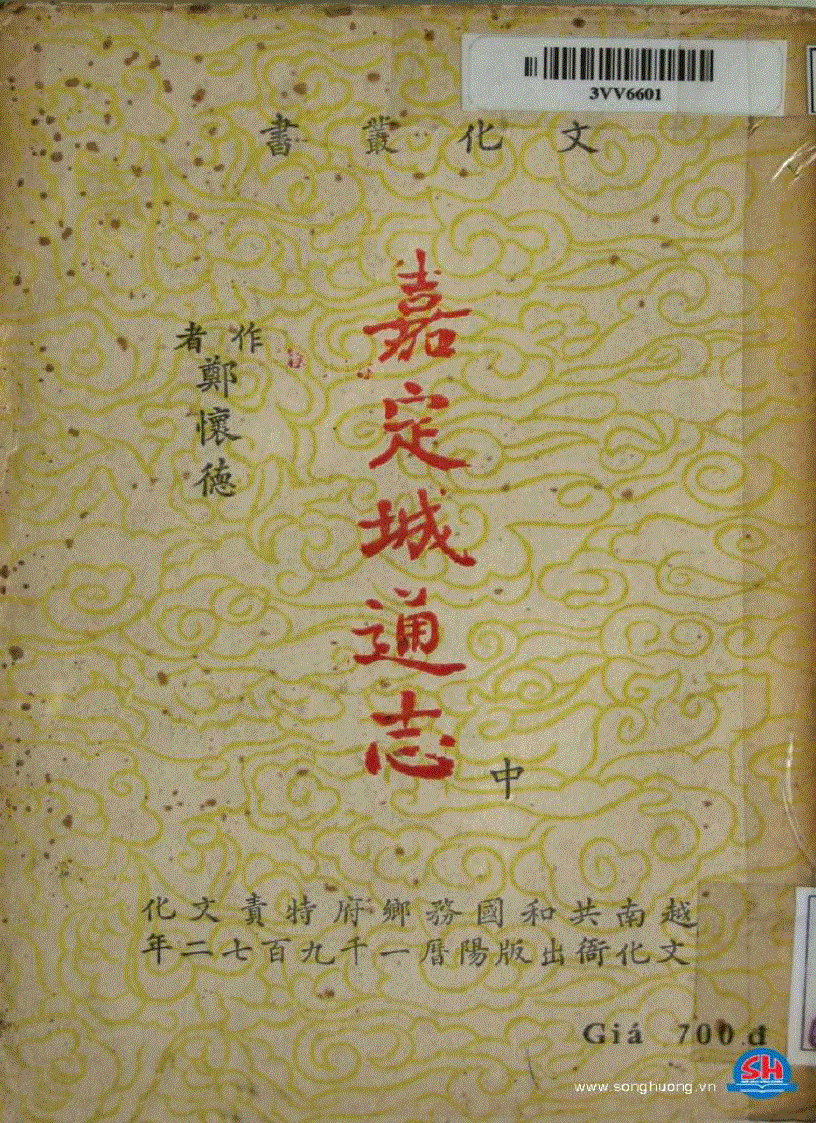 3VV6601
文化叢書
嘉定城通志
中
作者
鄭懷德
越南共和國務鄉府特責文化
文化衙出版陽暦一千九百七二年
Giá 700 đ
SH
www.songhuong.vn